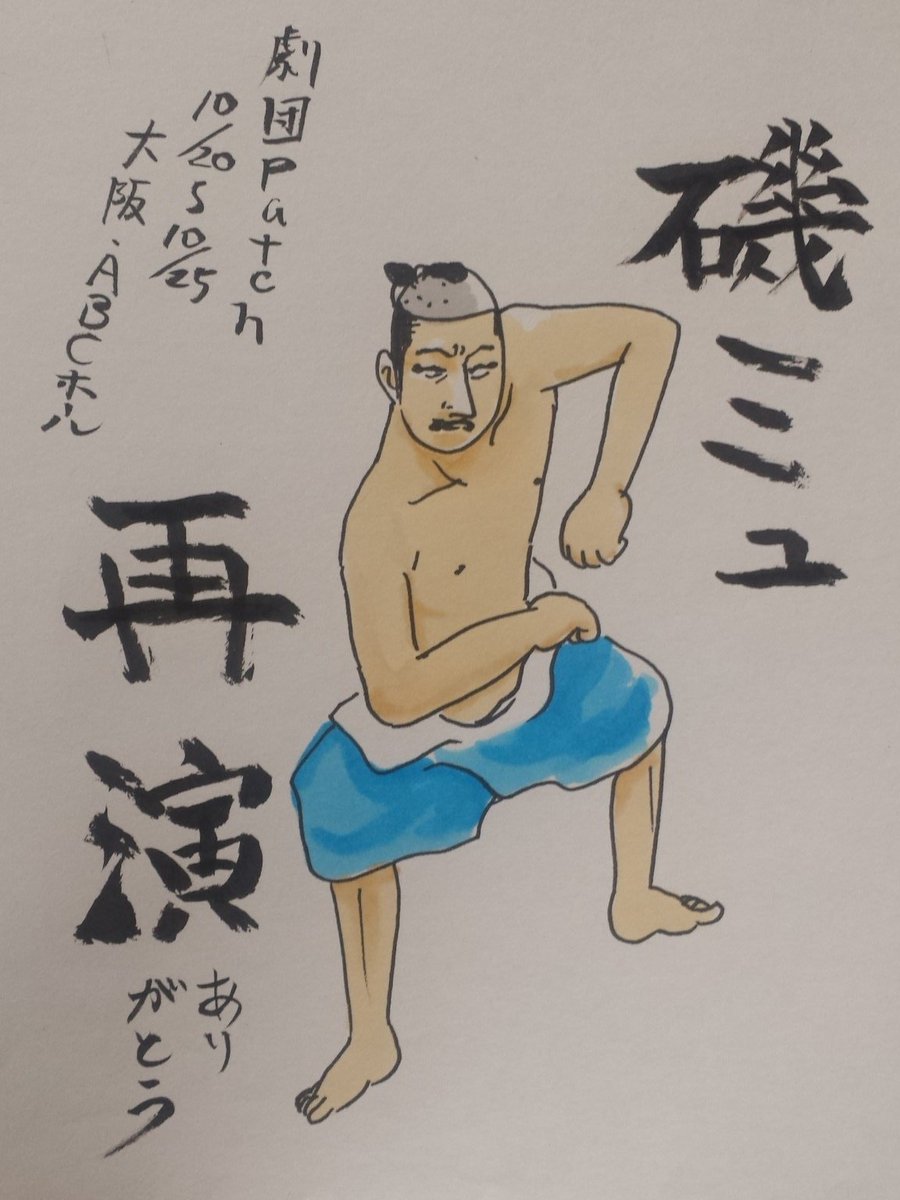 磯ミュ
劇団Patch
10/20〜10/25
大阪・ABCホール
再演
あり
がとう